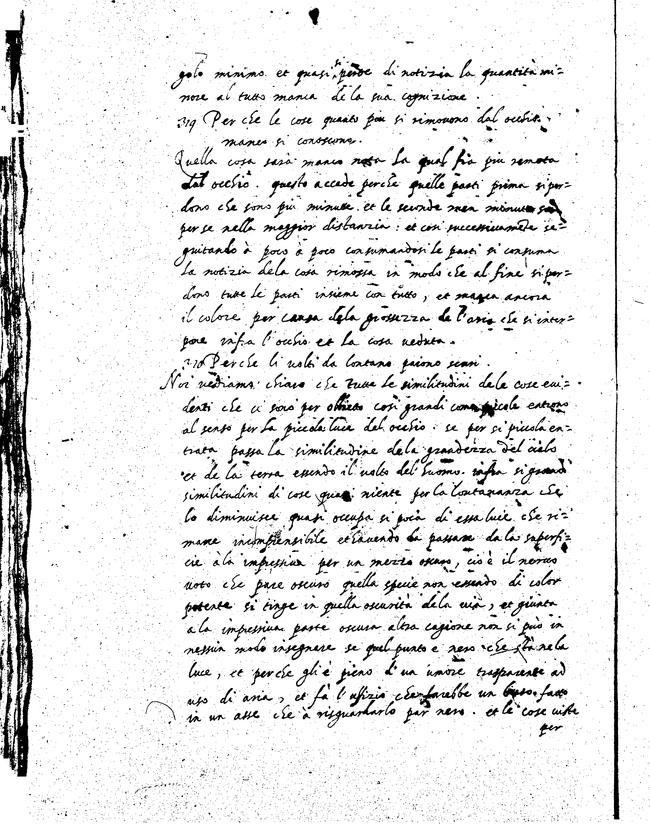 golo minimo. et quasi si perde di notizia la quantità mi=
nore al tutto manca de la sua cognizione.
319 Perche le cose quanto piu si rimovono dal occhio
manco si conoscono.
Quella cosa sarà manco nota la qual fia più remota
dal occhio. questo accade perche quelle parti prima si per=
dono che sono più minute. et le seconde men minute son
perse nella maggior distanzia: et cosi successivamente se=
guitando à poco à poco consumandosi le parti si consuma
la notizia dela cosa rimossa in modo che al fine si per=
dono tutte le parti insieme con tutto, et manca ancora
il colore per causa dela grossezza de l'aria che si inter=
pone infra l'occhio et la cosa veduta.
320 Perche li volti da lontano paiono scuri.
Noi vediamo chiaro che tutte le similitudini dele cose evi=
denti che ci sono per obbietto cosi grandi come picole entrono
al senso per la piccola luce del occhio: se per si picola en=
trata passa la similitudine de la grandezza del cielo
et de la terra essendo il volto del huomo. infra si grandi
similitudini di cose quasi niente per la lontananza che
lo diminuisce quasi occupa si poca di essa luce che ri=
mane incomprensibile et havendo da passare da la superfi=
cie à la impressiva per un mezzo oscuro, cio è il nervo
voto che pare oscuro quella specie non essendo di color
potente si tinge in quella oscurità dela via, et giunta
a la impressiva pare oscura altra cagione non si può in
nessun modo insegnare se quel punto è nero che stà nela
luce, et perche gli è pieno d'un umore trasparente ad
uso di aria, et fà l'ufizio che farebbe un buso fatto
in un asse che à risguardarlo par nero. et le cose viste
per